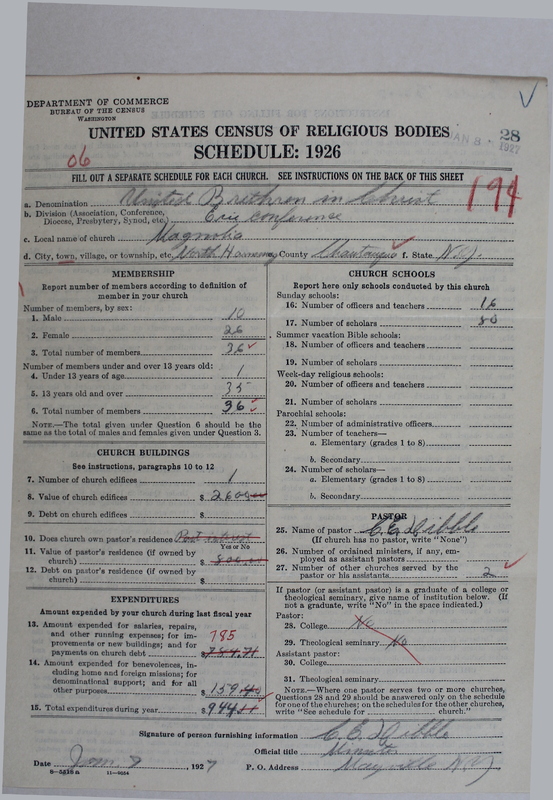 DEPARTMENT OF COMMERCE
BUREAU OF THE CENSUS
WASHINGTON
UNITED STATES CENSUS OF RELIGIOUS BODIES
SCHEDULE: 1926
JAN 8 - 1927
28
06
194
FILL OUT A SEPARATE SCHEDULE FOR EACH CHURCH. SEE INSTRUCTIONS ON THE BACK OF THIS SHEET
a. Denomination United Brethren in Christ
b. Division (Association, Conference, Diocese, Presbytery, Synod, etc.) Erie Conference
c. Local name of church Magnolia
d. City, town, village, or township, etc. North Harmony County Chautauqua f. State N.Y.
MEMBERSHIP
Report number of members according to definition of member in your church
Number of members, by sex:
1. Male 10
2. Female 26
3. Total number of members 36
Number of members under and over 13 years old:
4. Under 13 years of age 1
5. 13 years old and over 35
6. Total number of members 36
NOTE.—The total given under Question 6 should be the same as the total of males and females given under Question 3.
CHURCH BUILDINGS
See instructions, paragraphs 10 to 12
7. Number of church edifices 1
8. Value of church edifices $ 2600
9. Debt on church edifices $
10. Does church own pastor's residence Part interest
Yes or No
11. Value of pastor's residence (if owned by church) $ 800.00
12. Debt on pastor's residence (if owned by church) $
EXPENDITURES
Amount expended by your church during last fiscal year
13. Amount expended for salaries, repairs, and other running expenses; for improvements or new buildings; and for payments on church debt $ 784.71
785
14. Amount expended for benevolences, including home and foreign missions; for denominational support; and for all other purposes $ 159.40
15. Total expenditures during year $ 944.11
CHURCH SCHOOLS
Report here only schools conducted by this church
Sunday schools:
16. Number of officers and teachers 16
17. Number of scholars 80
Summer vacation Bible schools:
18. Number of officers and teachers
19. Number of scholars
Week-day religious schools:
20. Number of officers and teachers
21. Number of scholars
Parochial schools:
22. Number of administrative officers
23. Number of teachers—
a. Elementary (grades 1 to 8)
b. Secondary
24. Number of scholars—
a. Elementary (grades 1 to 8)
b. Secondary
PASTOR
25. Name of pastor C. E. Dibble
(If church has no pastor, write "None")
26. Number of ordained ministers, if any, employed as assistant pastors
27. Number of other churches served by the pastor or his assistants 2
If pastor (or assistant pastor) is a graduate of a college or theological seminary, give name of institution below. (If not a graduate, write "No" in the space indicated.)
Pastor:
28. College No
29. Theological seminary No
Assistant pastor:
30. College
31. Theological seminary
NOTE.—Where one pastor serves two or more churches, Questions 28 and 29 should be answered only on the schedule for one of the churches; on the schedules for the other churches, write "See schedule for ........ church."
Signature of person furnishing information C. E. Dibble
Official title Minister
Date Jan 7, 1927 P. O. Address Mayville N.Y.
8—5218a 11—9054